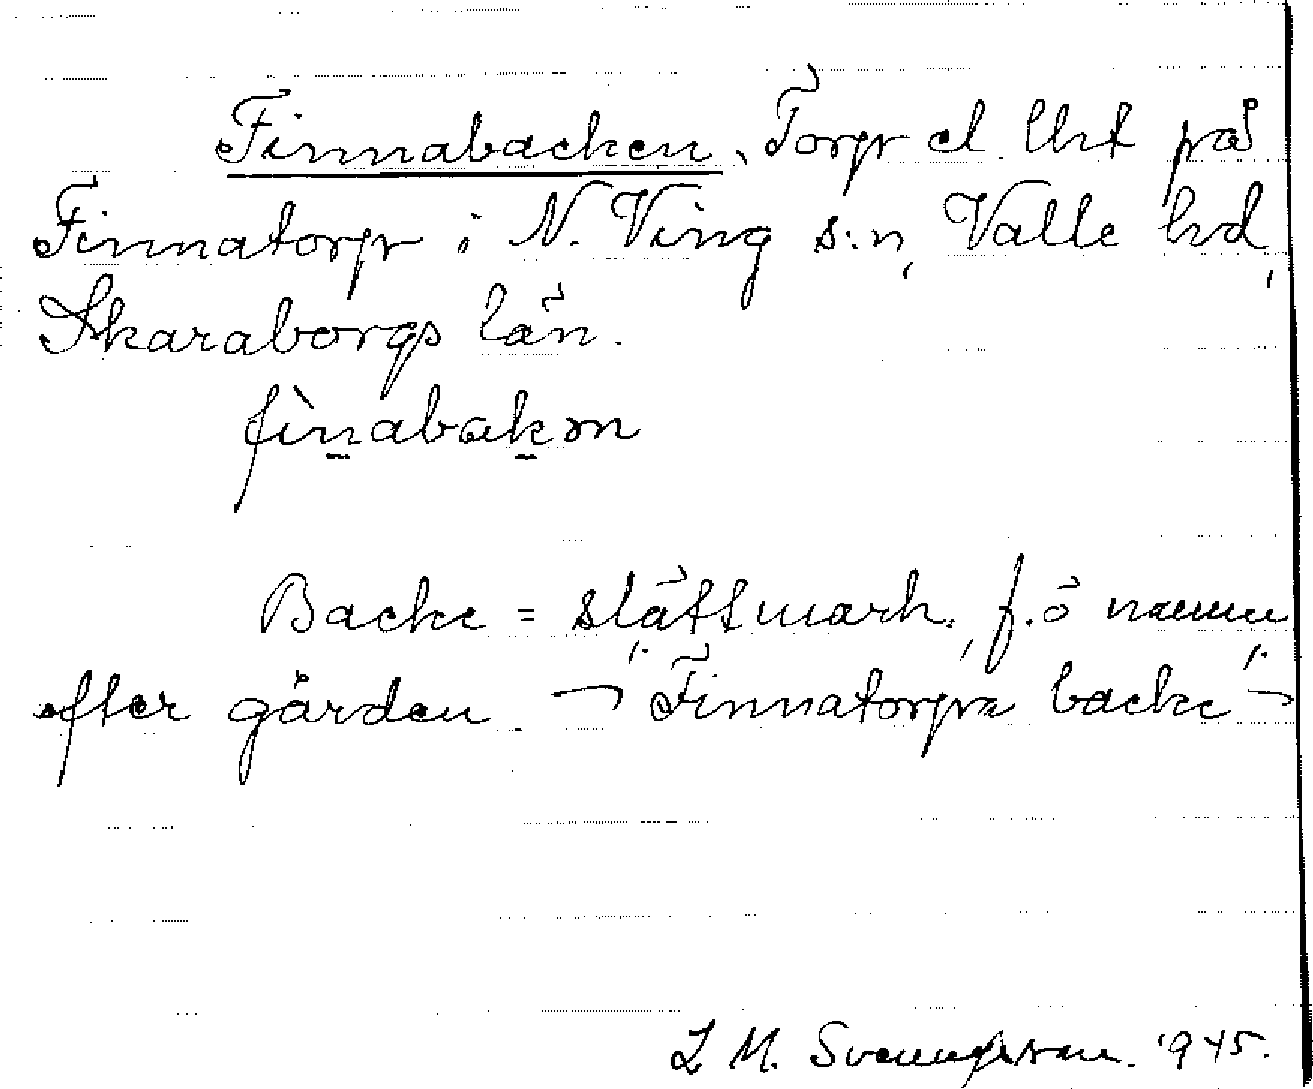 Finnabacken, Torp el. lht på
Finnatorp i N. Ving s:n, Valle hd,
Skaraborgs län.
fìnabakən
Backe = slättmark, f. ö namn
efter gården. ¬ Finnatorps backe ¬
L M. Svenungsson. 1945.